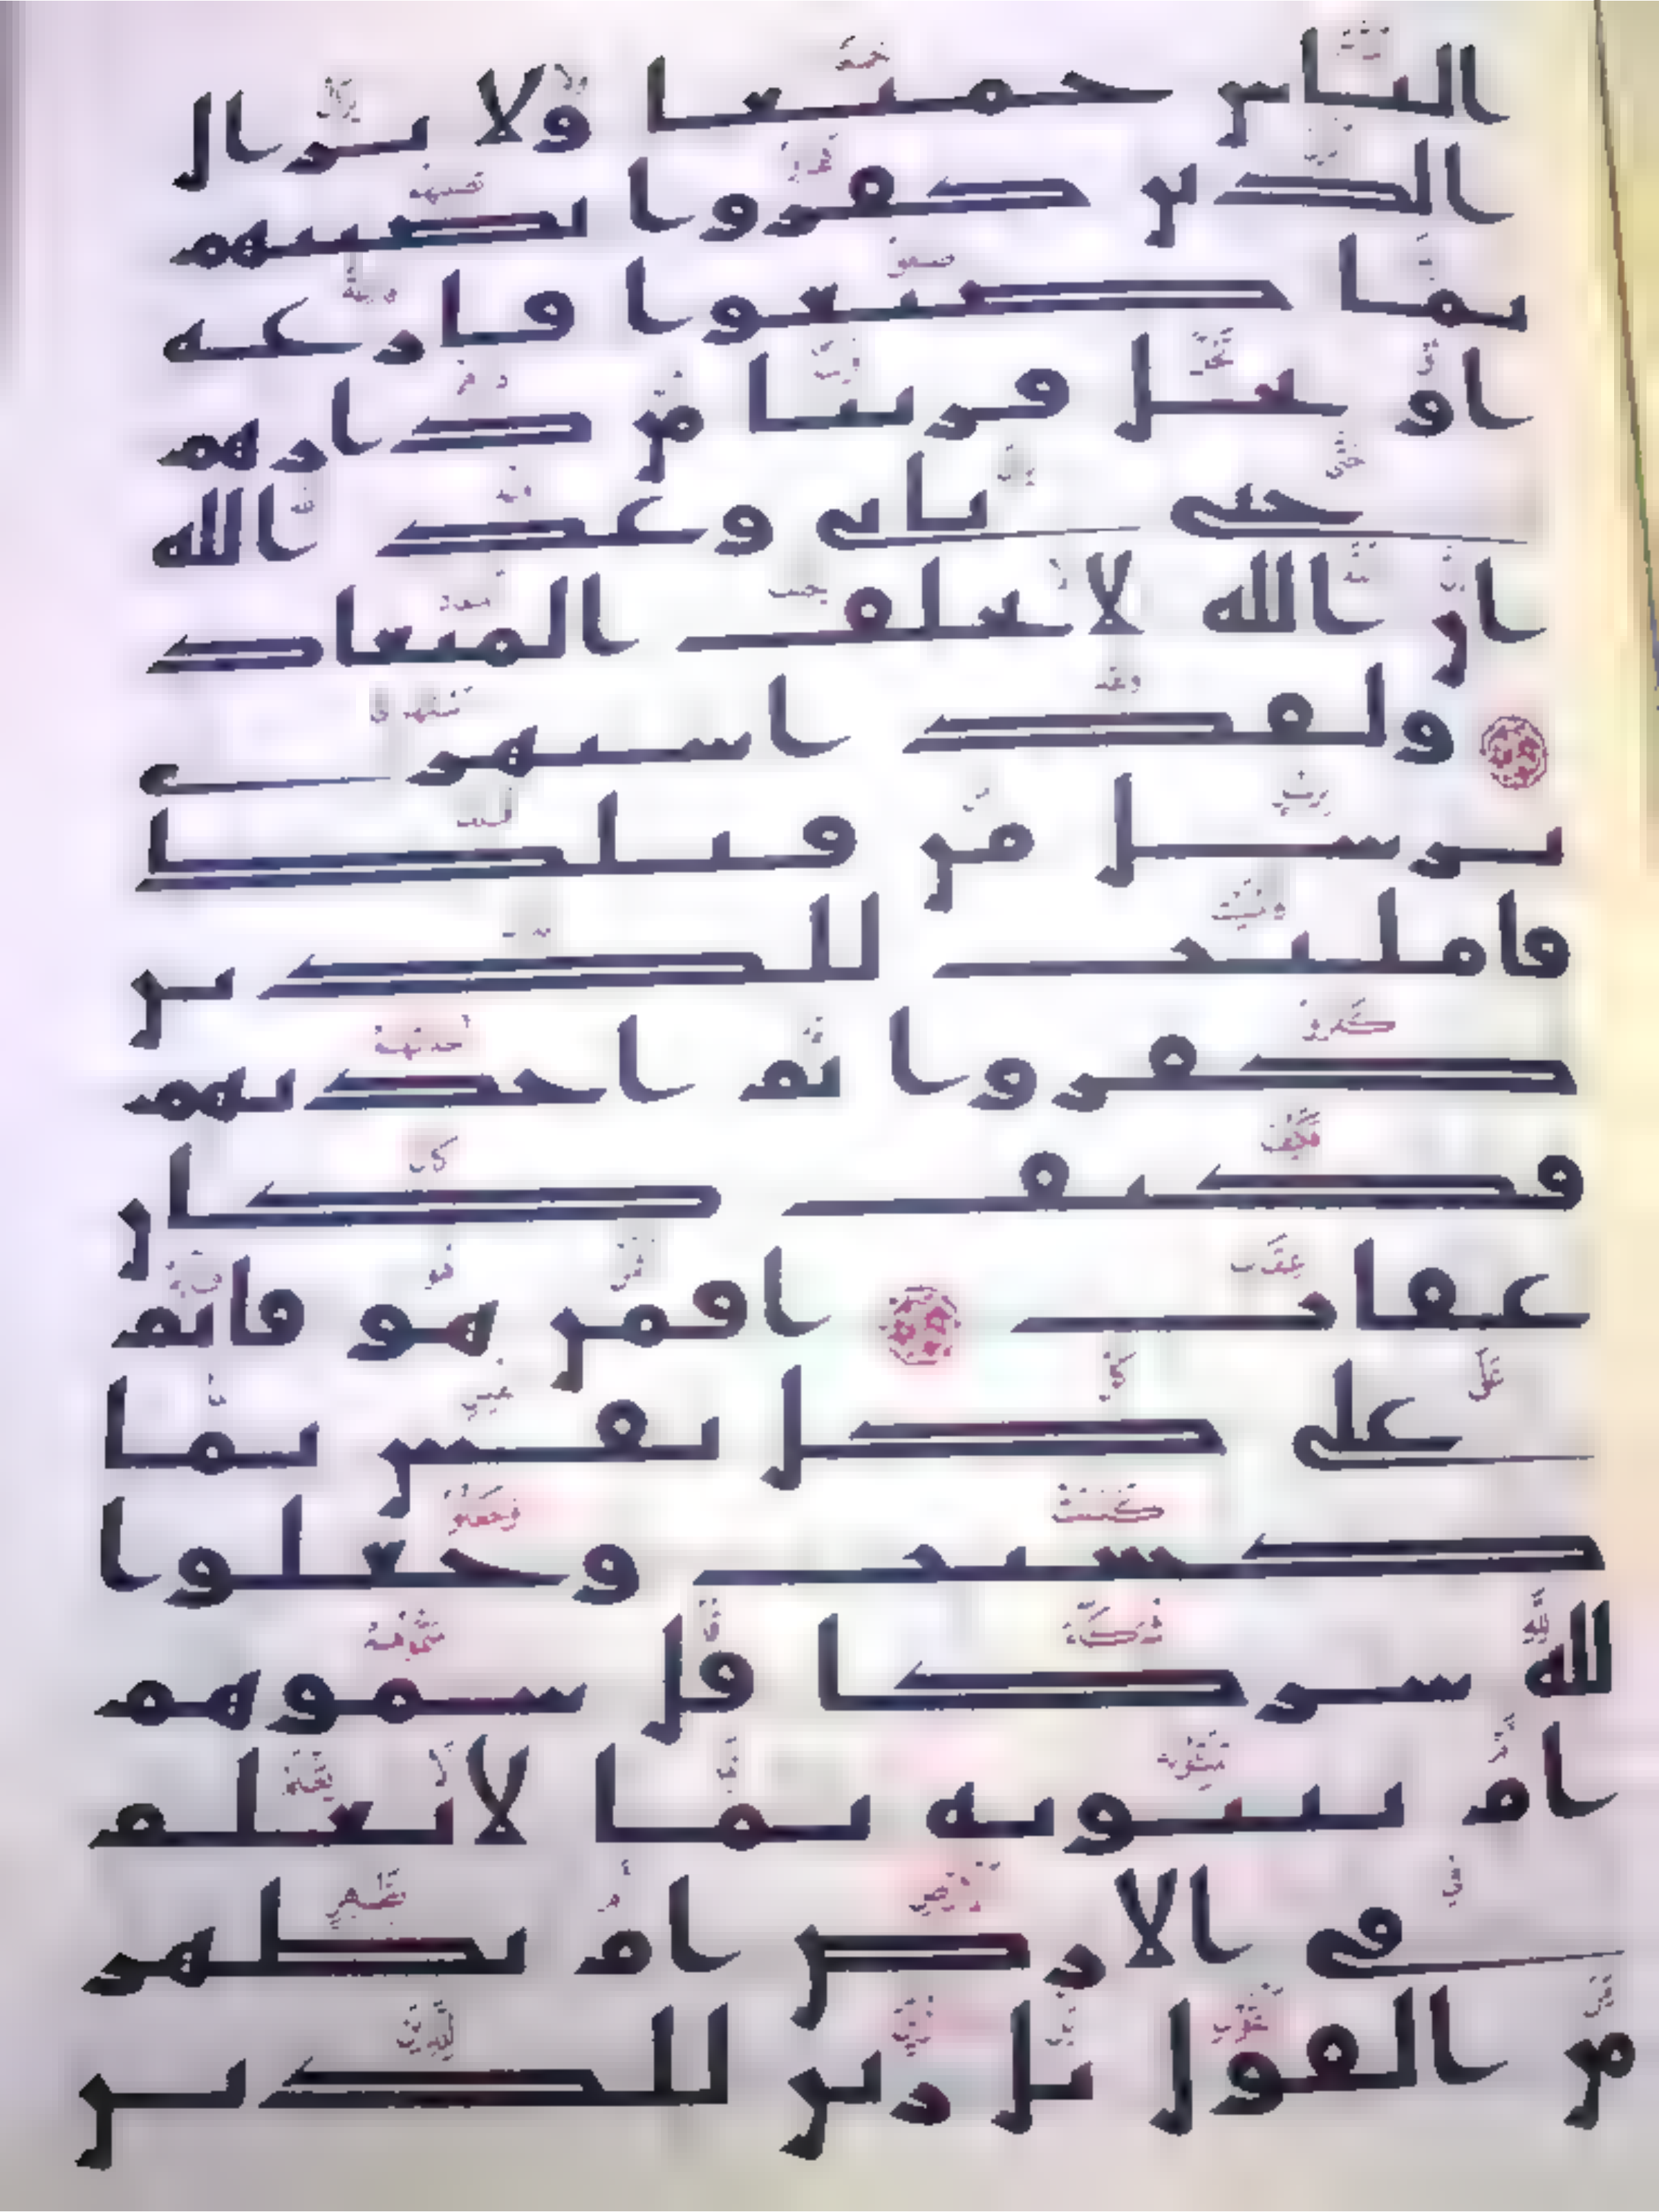 الناس جميعا ولا يزال
الذين كفروا تصيبهم
بما صنعوا قارعة
او تحل قريبا من دارهم
حتى ياتي وعد الله
ان الله لا يخلف الميعاد
ولقد استهزى
برسل من قبلك
فامليت للذين
كفروا ثم اخذتهم
فكيف كان
عقاب افمن هو قائم
على كل نفس بما
كسبت وجعلوا
لله شركا قل سموهم
ام تنبونه بما لا يعلم
في الارض ام بظهر
من القول بل زين للذين